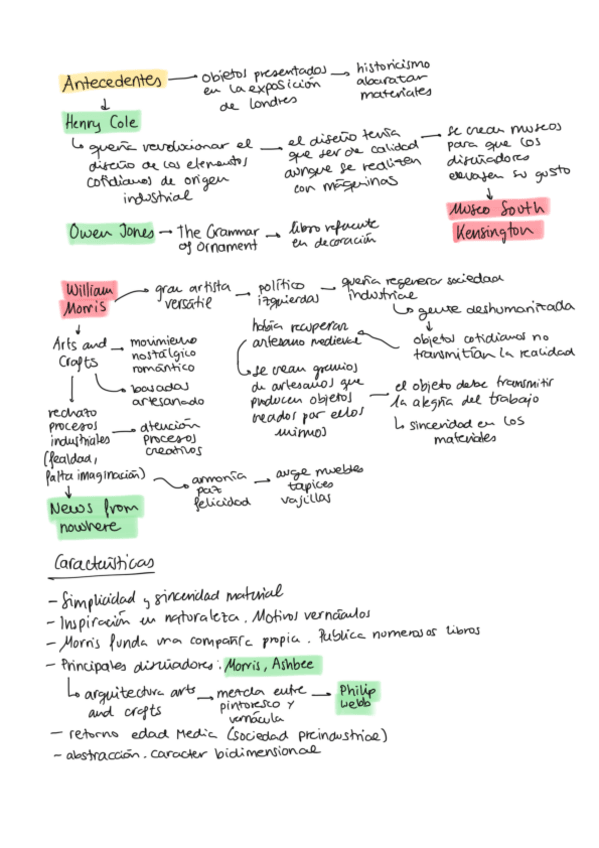 Antecedentes → objetos presentados → historicismo
en la exposición abaratar
de londres materiales
↓
Henry Cole
↳ quería revolucionar el → el diseño tenía → se crean museos
diseño de los elementos que ser de calidad para que los
cotidianos de origen aunque se realicen diseñadores
industrial con máquinas elevasen su gusto
↓
Museo South
Kensington
Owen Jones → The Grammar → libro referente
of Ornament en decoración
William → gran artista → político → quería regenerar sociedad
Morris versátil izquierdas industrial
↳ gente deshumanizada
↓
objetos cotidianos no
transmitían la realidad
había recuperar
artesano medieval
se crean gremios
de artesanos que
producen objetos
creados por ellos
mismos
→ el objeto debe transmitir
la alegría del trabajo
↳ sinceridad en los
materiales
↓
Arts and → movimiento
Crafts nostálgico
romántico
→ basadas
artesanado
↓
rechazo
procesos
industriales → atención
(fealdad, procesos
falta imaginación) creativos
→ armonía → auge muebles
paz tapices
felicidad vajillas
↓
News from
nowhere
Características
- Simplicidad y sinceridad material
- Inspiración en naturaleza. Motivos vernáculos
- Morris funda una compañía propia. Publica numerosos libros
- Principales diseñadores: Morris, Ashbee
↳ arquitectura arts → mezcla entre → Philip
and crafts pintoresco y Webb
vernácula
- retorno edad Media (sociedad preindustrial)
- abstracción. caracter bidimensional